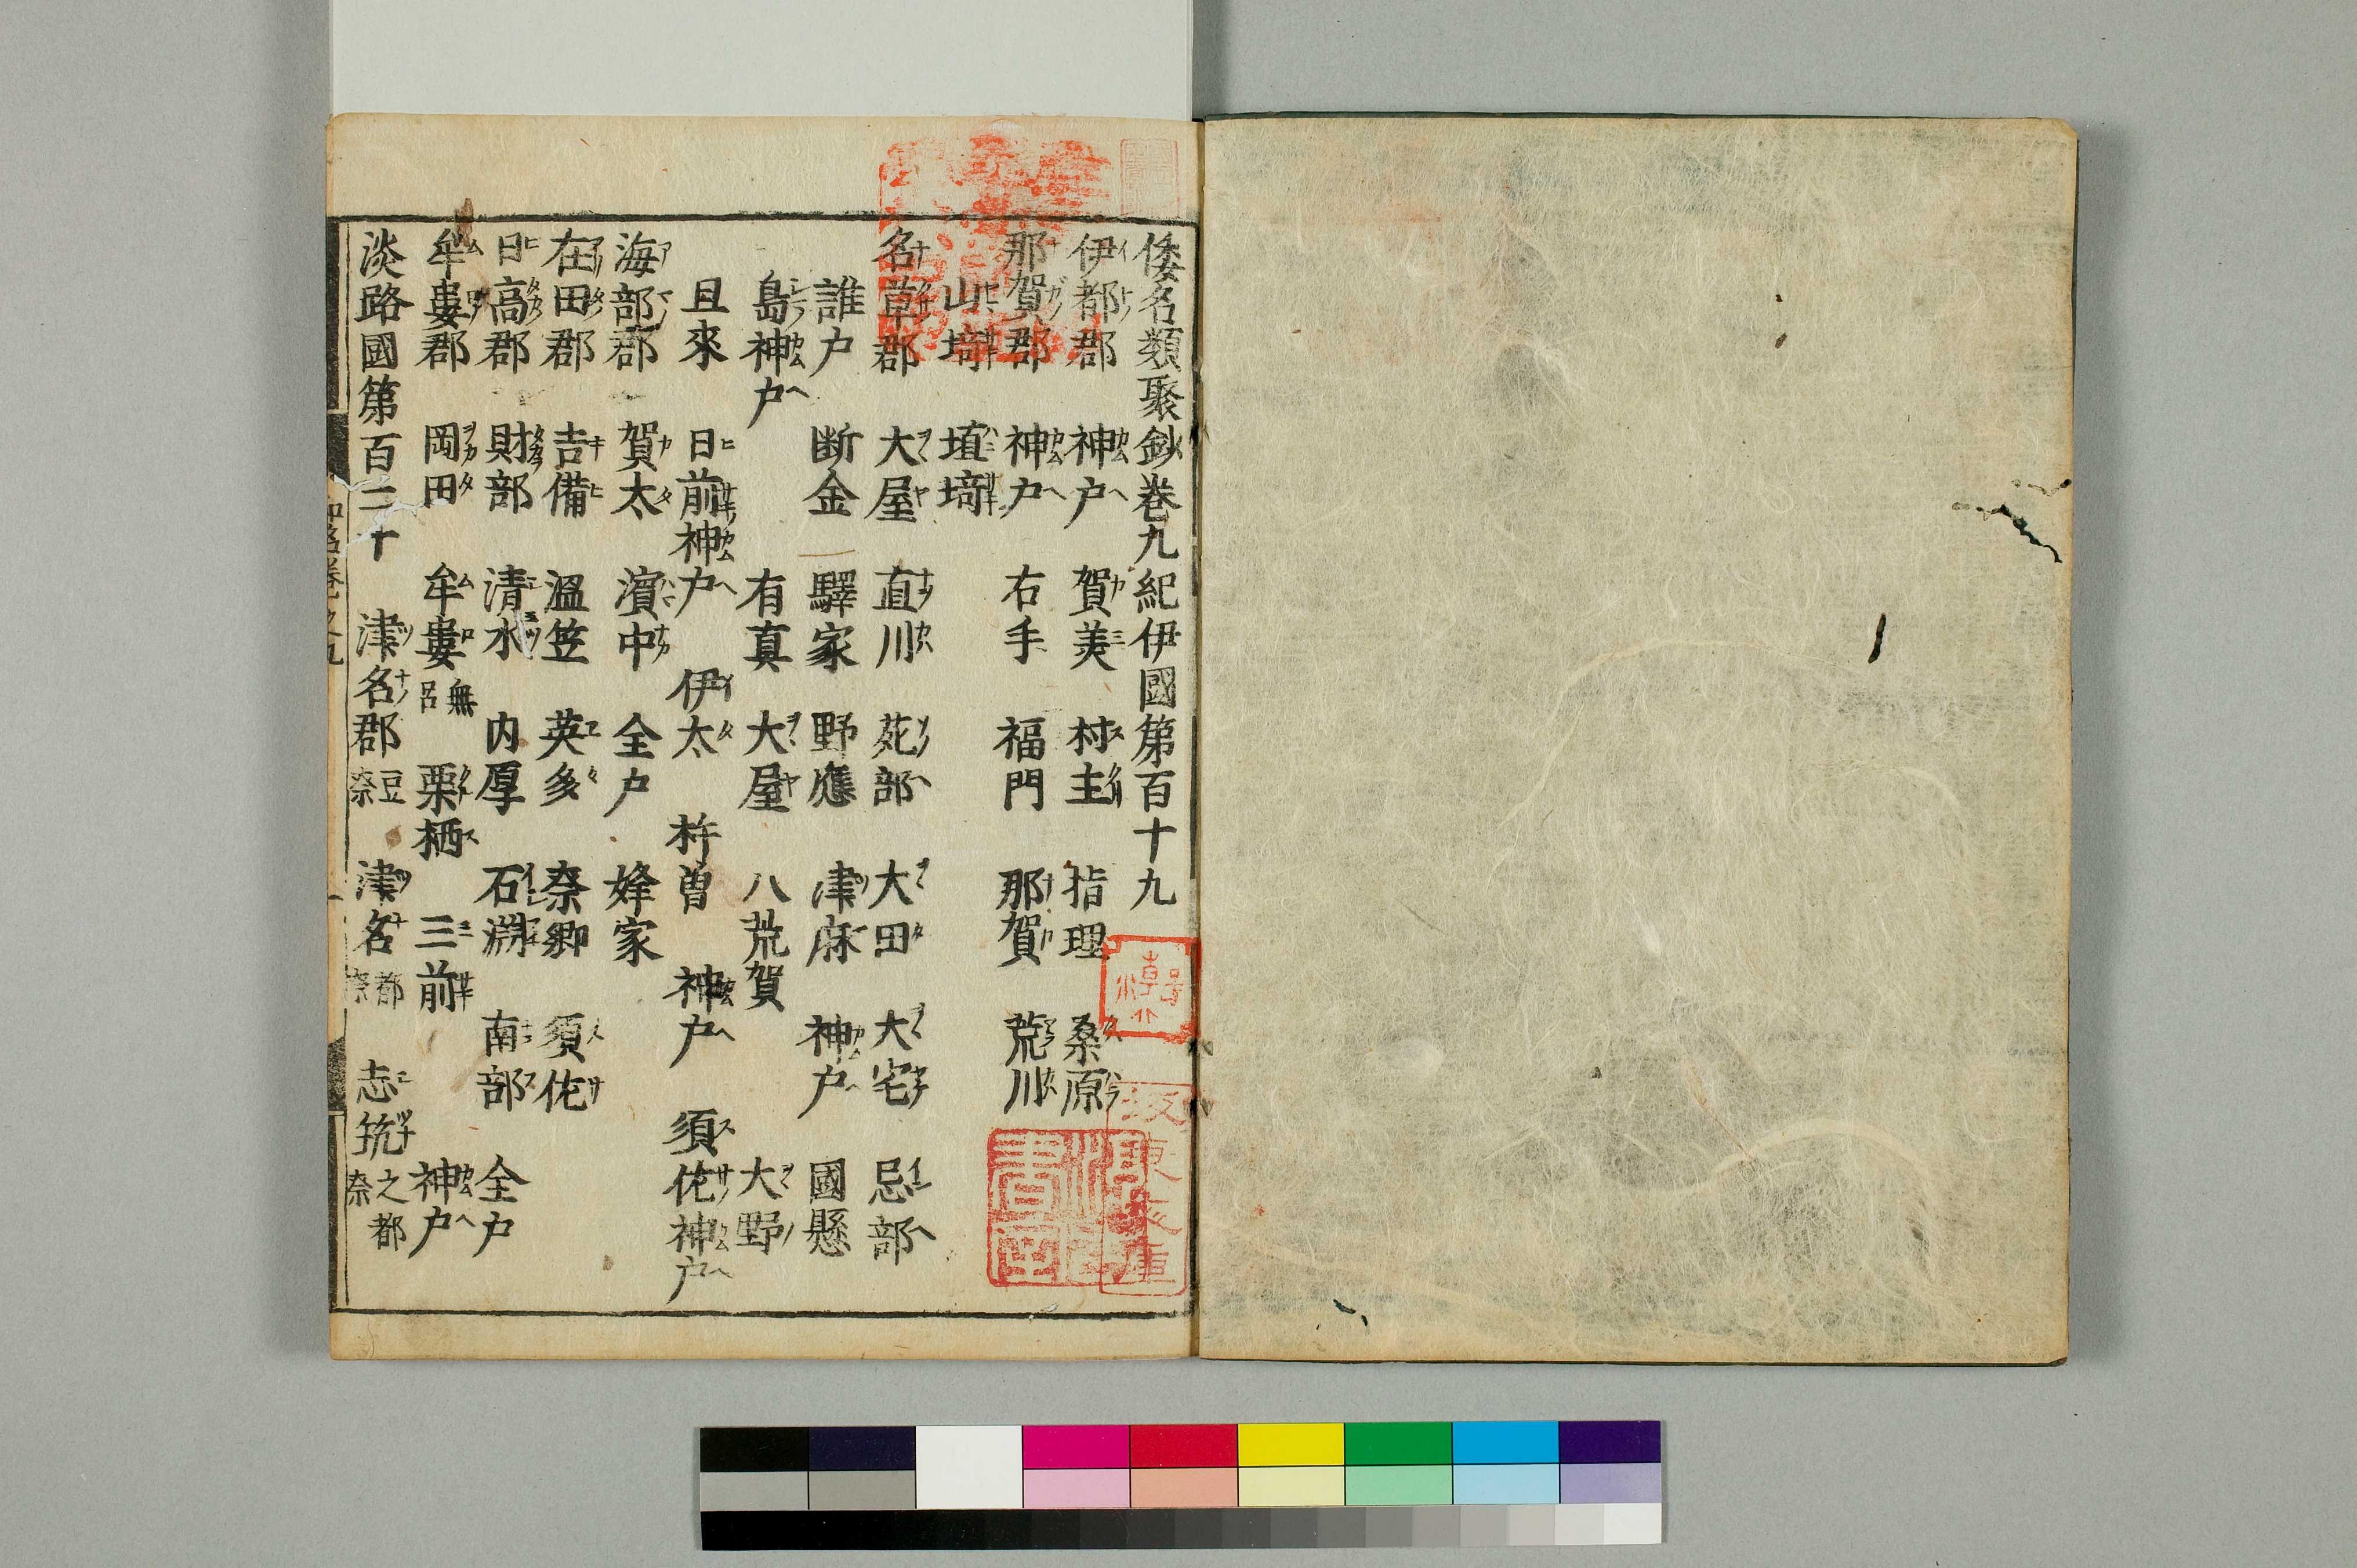 倭名類聚鈔巻九紀伊國第百十九
伊都郡 神戸 賀美 村主 指理 桑原
那賀郡 神戸 右手 福門 那賀 荒川
山埼 埴埼
名草郡 大屋 直川 苑部 大田 大宅 忌部
誰戸 断金 驛家 野應 津麻 神戸 國懸
島神戸 有真 大屋 八荒賀 大野
且來 日前神戸 伊太 杵曽 神戸 須佐神戸
海部郡 賀太 濱中 全戸 㛔家
在田郡 吉備 温笠 英多 奈郷 須佐
日高郡 財部 清水 内厚 石淵 南部 全戸
牟婁郡 岡田 牟婁 無呂 栗栖 三前 神戸
淡路國第百二十 津名郡 豆奈 津名 都奈 志筑 之都奈